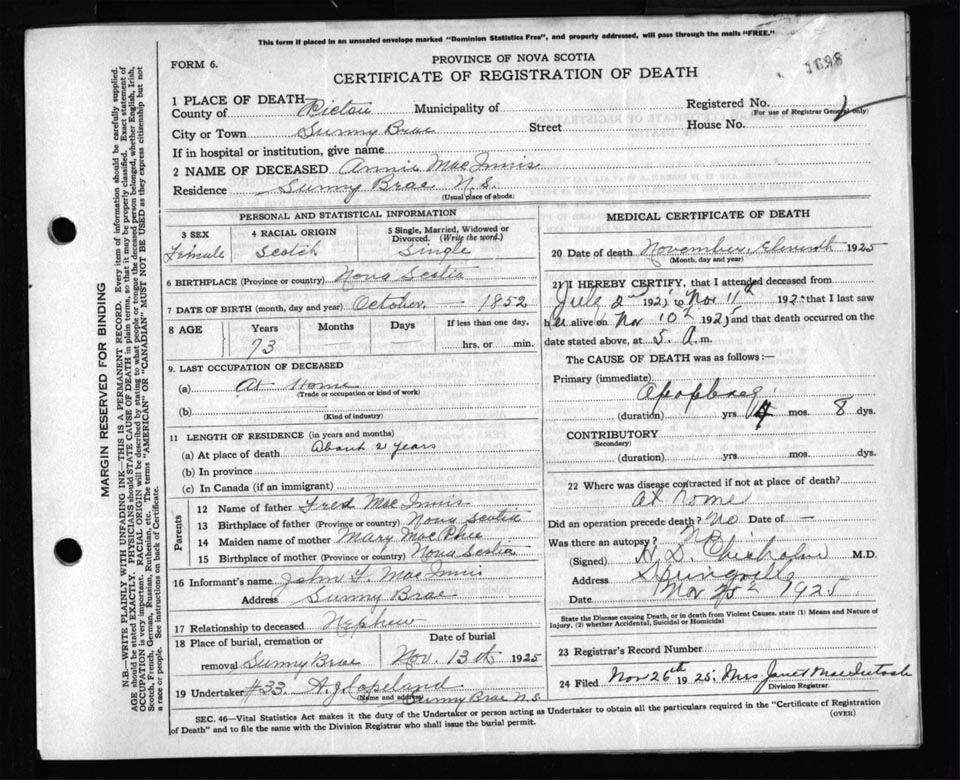 This form if placed in an unsealed envelope marked "Dominion Statistics Free", and properly addressed, will pass through the mails "FREE."
FORM 6.
PROVINCE OF NOVA SCOTIA
CERTIFICATE OF REGISTRATION OF DEATH
1 PLACE OF DEATH—
County of Pictou Municipality of
Registered No.
(For use of Registrar General only)
City or Town Sunny Brae Street House No.
If in hospital or institution, give name
2 NAME OF DECEASED Annie MacInnis
Residence Sunny Brae N.S.
(Usual place of abode)
PERSONAL AND STATISTICAL INFORMATION
3 SEX 4 RACIAL ORIGIN 5 Single, Married, Widowed or Divorced. (Write the word.)
Female Scotch Single
6 BIRTHPLACE (Province or country) Nova Scotia
7 DATE OF BIRTH (month, day and year) October — 1852
8 AGE Years Months Days If less than one day,
73 hrs. or min.
9. LAST OCCUPATION OF DECEASED
(a) At Home
(Trade or occupation or kind of work)
(b)
(Kind of industry)
11 LENGTH OF RESIDENCE (in years and months)
(a) At place of death About 2 years
(b) In province
(c) In Canada (if an immigrant)
Parents
12 Name of father Fred MacInnis
13 Birthplace of father (Province or country) Nova Scotia
14 Maiden name of mother Mary MacPhee
15 Birthplace of mother (Province or country) Nova Scotia
16 Informant's name John F. MacInnis
Address Sunny Brae
17 Relationship to deceased Nephew
18 Place of burial, cremation or Date of burial
removal Sunny Brae Nov. 13th 1925
19 Undertaker #33. A.J. Copeland
(Name and address) Sunny Brae N.S.
MEDICAL CERTIFICATE OF DEATH
20 Date of death November, Eleventh 1925
(Month, day and year)
21 I HEREBY CERTIFY, that I attended deceased from
July 2nd 1921 to Nov 11th 192 that I last saw
her alive on Nov 10th 1925 and that death occurred on
date stated above, at 5. A. m.
The CAUSE OF DEATH was as follows:—
Primary (immediate)
Apoplexy
(duration) yrs 4 mos. 8 dys.
CONTRIBUTORY
(Secondary)
(duration) yrs. mos. dys.
22 Where was disease contracted if not at place of death?
At home
Did an operation precede death? No Date of —
Was there an autopsy?
(Signed) H. D. Chisholm M.D.
Address Springville
Date Nov 25th 1925
State the Disease causing Death, or in death from Violent Causes, state (1) Means and Nature of Injury, (2) whether Accidental, Suicidal or Homicidal
23 Registrar's Record Number
24 Filed Nov 26th 1925. Mrs Janet MacIntosh
Division Registrar
SEC. 46—Vital Statistics Act makes it the duty of the Undertaker or person acting as Undertaker to obtain all the particulars required in the "Certificate of Registration
of Death" and to file the same with the Division Registrar who shall issue the burial permit.
(OVER)
MARGIN RESERVED FOR BINDING
N.B.—WRITE PLAINLY WITH UNFADING INK—THIS IS A PERMANENT RECORD. Every item of information should be carefully supplied.
AGE should be stated EXACTLY. PHYSICIANS should STATE CAUSE OF DEATH in plain terms, so that it may be properly classified. Exact statement of
OCCUPATION is very important. RACIAL ORIGIN will be described by stating to what people or tongue the deceased person belonged, whether English, Irish,
Scotch, French, German, Russian, Ruthenian, etc. The terms "AMERICAN" OR "CANADIAN" MUST NOT BE USED as they express citizenship but not
a race or people. See instructions on back of Certificate.